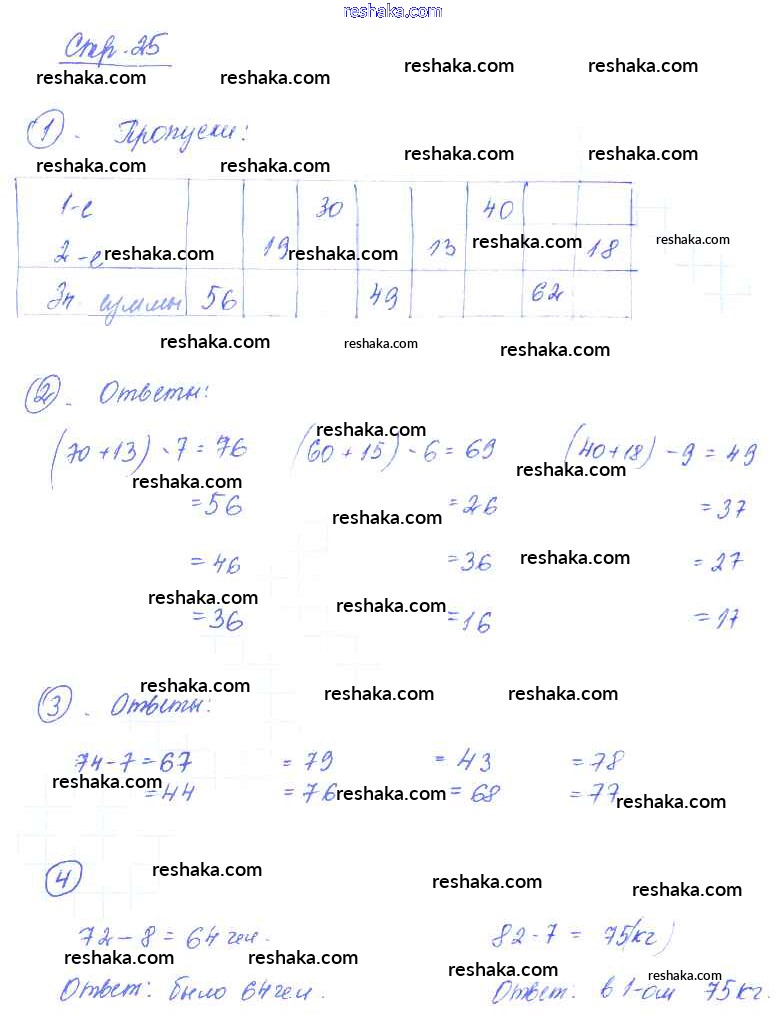 reshaka.com
Стр. 25
reshaka.com reshaka.com reshaka.com reshaka.com
1. Пропуски:
reshaka.com reshaka.com reshaka.com reshaka.com
1-е 30 40
2-е 19 13 18
reshaka.com reshaka.com reshaka.com reshaka.com
Зн суммы 56 49 62
reshaka.com reshaka.com reshaka.com
2. Ответы:
reshaka.com
(70+13)-7=76 (60+15)-6=69 (40+18)-9=49
reshaka.com reshaka.com
=56 =26 =37
reshaka.com
=46 =36 =27
reshaka.com
reshaka.com reshaka.com
=36 =16 =17
reshaka.com reshaka.com reshaka.com
3. Ответы:
74-7=67 =79 =43 =78
reshaka.com
=44 =76 =68 =77
reshaka.com reshaka.com
4
reshaka.com reshaka.com reshaka.com
72-8=64 чел. 82-7=75(кг)
reshaka.com reshaka.com
reshaka.com reshaka.com
Ответ: было 64 чел. Ответ: в 1-ом 75 кг.
reshaka.com reshaka.com